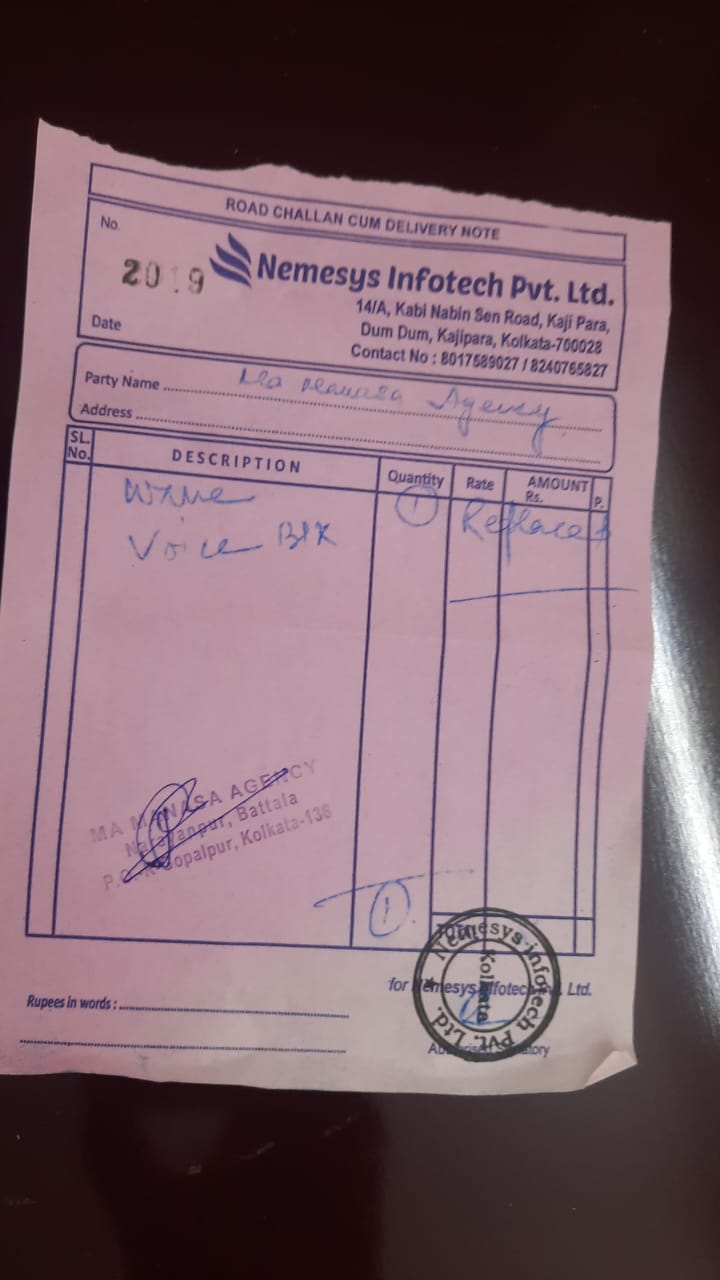 ROAD CHALLAN CUM DELIVERY NOTE
No.
2019
Nemesys Infotech Pvt. Ltd.
14/A, Kabi Nabin Sen Road, Kaji Para,
Dum Dum, Kajipara, Kolkata-700028
Contact No : 8017589027 / 8240765827
Date
Party Name Ma Manasa Agency
Address
SL. No. DESCRIPTION Quantity Rate AMOUNT Rs. P.
1 Replace
Voice BLK
MA MANASA AGENCY
Narayanpur, Battala
Gopalpur, Kolkata-136
1
Total
for Nemesys Infotech Pvt. Ltd.
Nemesys Infotech Pvt. Ltd.
Kolkata
Rupees in words :
Authorised Signatory